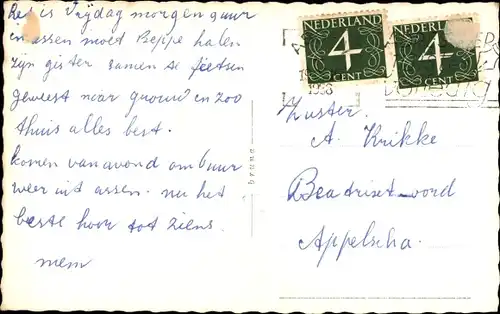 het is Vrijdag morgen 9 uur
in assen moet Beppe halen
zijn gister samen te fietsen
geweest naar en zoo
thuis alles best.
komen vanavond om 6 uur
weer uit assen. nu het
beste hoor tot Ziens.
mem
bruna
NEDERLAND
4
CENT
NEDERLAND
4
CENT
1958
Zuster.
A. Krikke
Beatrixoord
Appelscha.